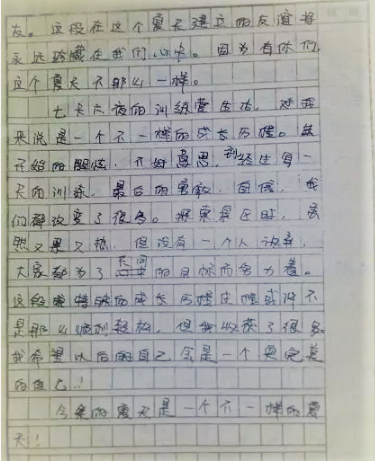 友。这段在这个夏天建立的友谊将
永远珍藏在我们心中。因为有你们,
这个夏天不那么一样。
七天六夜的训练营生活,对我
来说是一个不一样的成长历程。从
开始的胆怯,不好意思,到经过每一
天的训练,最后的勇敢,自信,我
们都改变了很多。拓展展区时,虽
然又累又热,但没有一个人放弃,
大家都为了共同的目标而努力着。
这段特殊的成长历程过程或许不
是那么顺利轻松,但我收获了很多。
我希望以后的自己,会是一个更完美
的自己!
今年的夏天是一个不一样的夏
天!